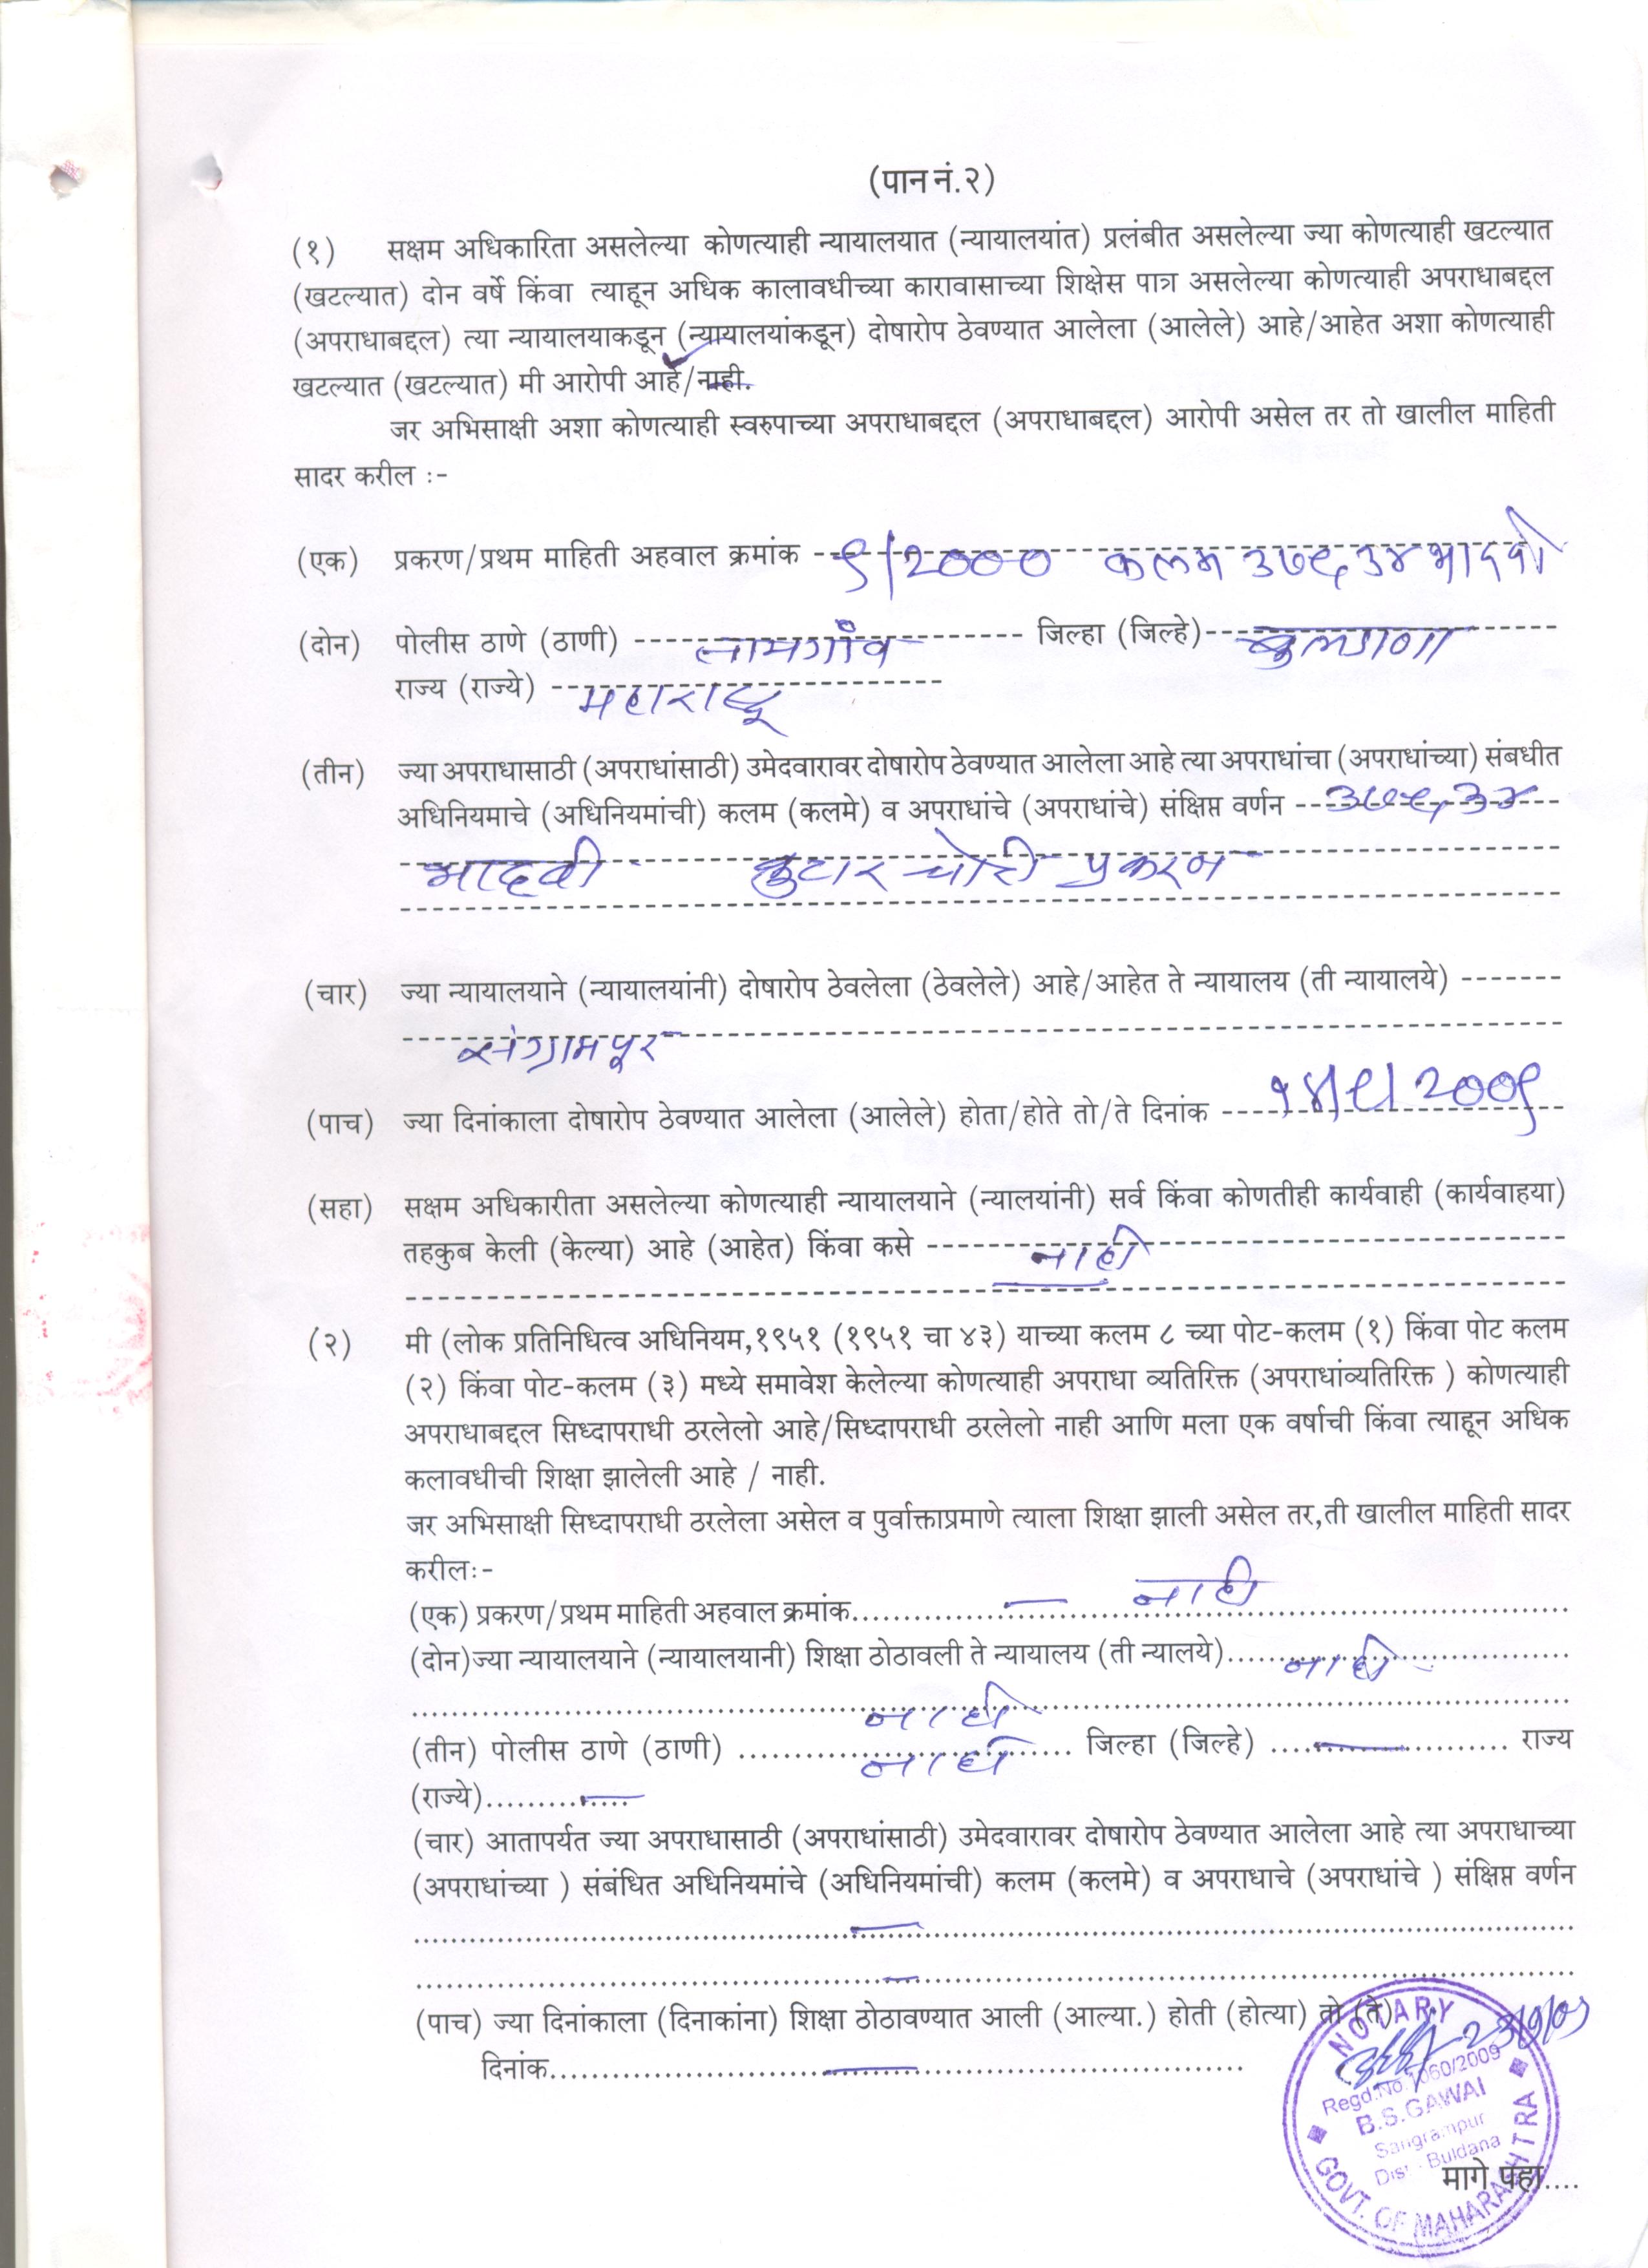 (पान नं.२)
(१) सक्षम अधिकारिता असलेल्या कोणत्याही न्यायालयात (न्यायालयांत) प्रलंबीत असलेल्या ज्या कोणत्याही खटल्यात
(खटल्यात) दोन वर्षे किंवा त्याहून अधिक कालावधीच्या कारावासाच्या शिक्षेस पात्र असलेल्या कोणत्याही अपराधाबद्दल
(अपराधाबद्दल) त्या न्यायालयाकडून (न्यायालयांकडून) दोषारोप ठेवण्यात आलेला (आलेले) आहे/आहेत अशा कोणत्याही
खटल्यात (खटल्यात) मी आरोपी आहे/नाही.
जर अभिसाक्षी अशा कोणत्याही स्वरुपाच्या अपराधाबद्दल (अपराधाबद्दल) आरोपी असेल तर तो खालील माहिती
सादर करील :-
(एक) प्रकरण/प्रथम माहिती अहवाल क्रमांक -- ९/2000 कलम ३७९,३४ भादवी
(दोन) पोलीस ठाणे (ठाणी) -- तामगाँव -- जिल्हा (जिल्हे)-- बुलडाणा
राज्य (राज्ये) -- महाराष्ट्र
(तीन) ज्या अपराधासाठी (अपराधांसाठी) उमेदवारावर दोषारोप ठेवण्यात आलेला आहे त्या अपराधांचा (अपराधांच्या) संबधीत
अधिनियमाचे (अधिनियमांची) कलम (कलमे) व अपराधांचे (अपराधांचे) संक्षिप्त वर्णन -- ३७९,३४
भादवी कुटार चोरी प्रकरण
(चार) ज्या न्यायालयाने (न्यायालयांनी) दोषारोप ठेवलेला (ठेवलेले) आहे/आहेत ते न्यायालय (ती न्यायालये) -------
संग्रामपूर
(पाच) ज्या दिनांकाला दोषारोप ठेवण्यात आलेला (आलेले) होता/होते तो/ते दिनांक -- 200९
(सहा) सक्षम अधिकारीता असलेल्या कोणत्याही न्यायालयाने (न्यालयांनी) सर्व किंवा कोणतीही कार्यवाही (कार्यवाहया)
तहकुब केली (केल्या) आहे (आहेत) किंवा कसे -- नाही
(२) मी (लोक प्रतिनिधित्व अधिनियम,१९५१ (१९५१ चा ४३) याच्या कलम ८ च्या पोट-कलम (१) किंवा पोट कलम
(२) किंवा पोट-कलम (३) मध्ये समावेश केलेल्या कोणत्याही अपराधा व्यतिरिक्त (अपराधांव्यतिरिक्त ) कोणत्याही
अपराधाबद्दल सिध्दापराधी ठरलेलो आहे/सिध्दापराधी ठरलेलो नाही आणि मला एक वर्षाची किंवा त्याहून अधिक
कलावधीची शिक्षा झालेली आहे / नाही.
जर अभिसाक्षी सिध्दापराधी ठरलेला असेल व पुर्वाक्ताप्रमाणे त्याला शिक्षा झाली असेल तर,ती खालील माहिती सादर
करील:-
(एक) प्रकरण/प्रथम माहिती अहवाल क्रमांक.... — नाही
(दोन)ज्या न्यायालयाने (न्यायालयानी) शिक्षा ठोठावली ते न्यायालय (ती न्यालये).... नाही
नाही
(तीन) पोलीस ठाणे (ठाणी) .... नाही .... जिल्हा (जिल्हे) .... — .... राज्य
(राज्ये).... —
(चार) आतापर्यत ज्या अपराधासाठी (अपराधांसाठी) उमेदवारावर दोषारोप ठेवण्यात आलेला आहे त्या अपराधाच्या
(अपराधांच्या ) संबंधित अधिनियमांचे (अधिनियमांची) कलम (कलमे) व अपराधाचे (अपराधांचे ) संक्षिप्त वर्णन
—
—
(पाच) ज्या दिनांकाला (दिनाकांना) शिक्षा ठोठावण्यात आली (आल्या.) होती (होत्या) तो (ते)
दिनांक.... —
NOTARY
Regd.No.1060/2009
B.S.GAWAI
Sangrampur
Dist - Buldana
GOVT. OF MAHARASHTRA
मागे पहा....